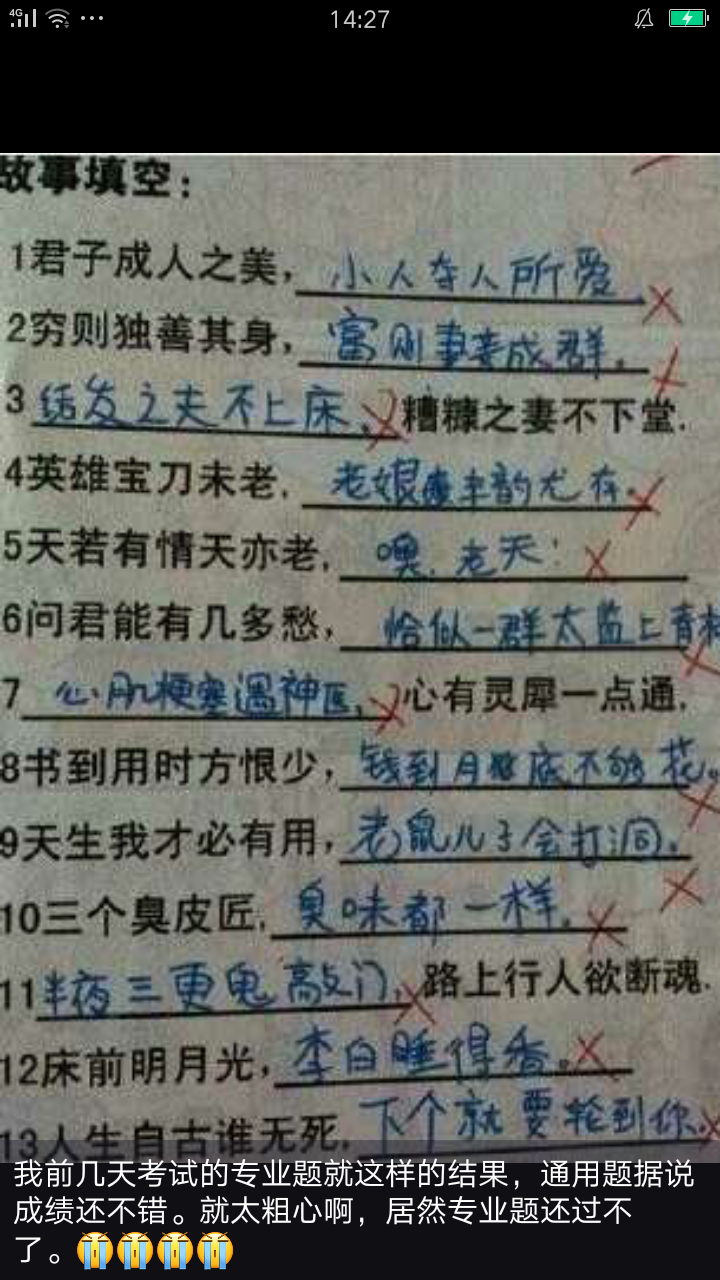 4G
14:27
故事填空：
1君子成人之美，小人夺人所爱.
2穷则独善其身，富则妻妾成群.
3结发之夫不上床.糟糠之妻不下堂.
4英雄宝刀未老.老娘丰韵尤存.
5天若有情天亦老.噢.老天!
6问君能有几多愁，恰似一群太监上青
7心肌梗塞遇神医.心有灵犀一点通.
8书到用时方恨少，钱到月底不够花。
9天生我才必有用，老鼠儿子会打洞.
10三个臭皮匠.臭味都一样.
11半夜三更鬼敲门.路上行人欲断魂.
12床前明月光，李白睡得香。
13人生自古谁无死.下个就要轮到你.
我前几天考试的专业题就这样的结果，通用题据说
成绩还不错。就太粗心啊，居然专业题还过不
了。😭😭😭😭